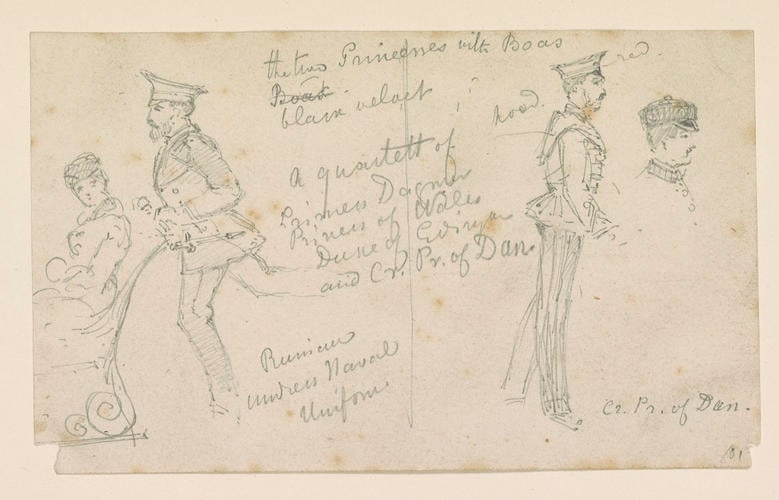 the two Princesses with Boas
Boat
black velvet
red.
hood.
A quartett of
Princess Dagmar
Princess of Wales
Duke of Edingn
and Cr. Pr. of Dan.
Russian
undress Naval
Uniform
Cr. Pr. of Dan.
101